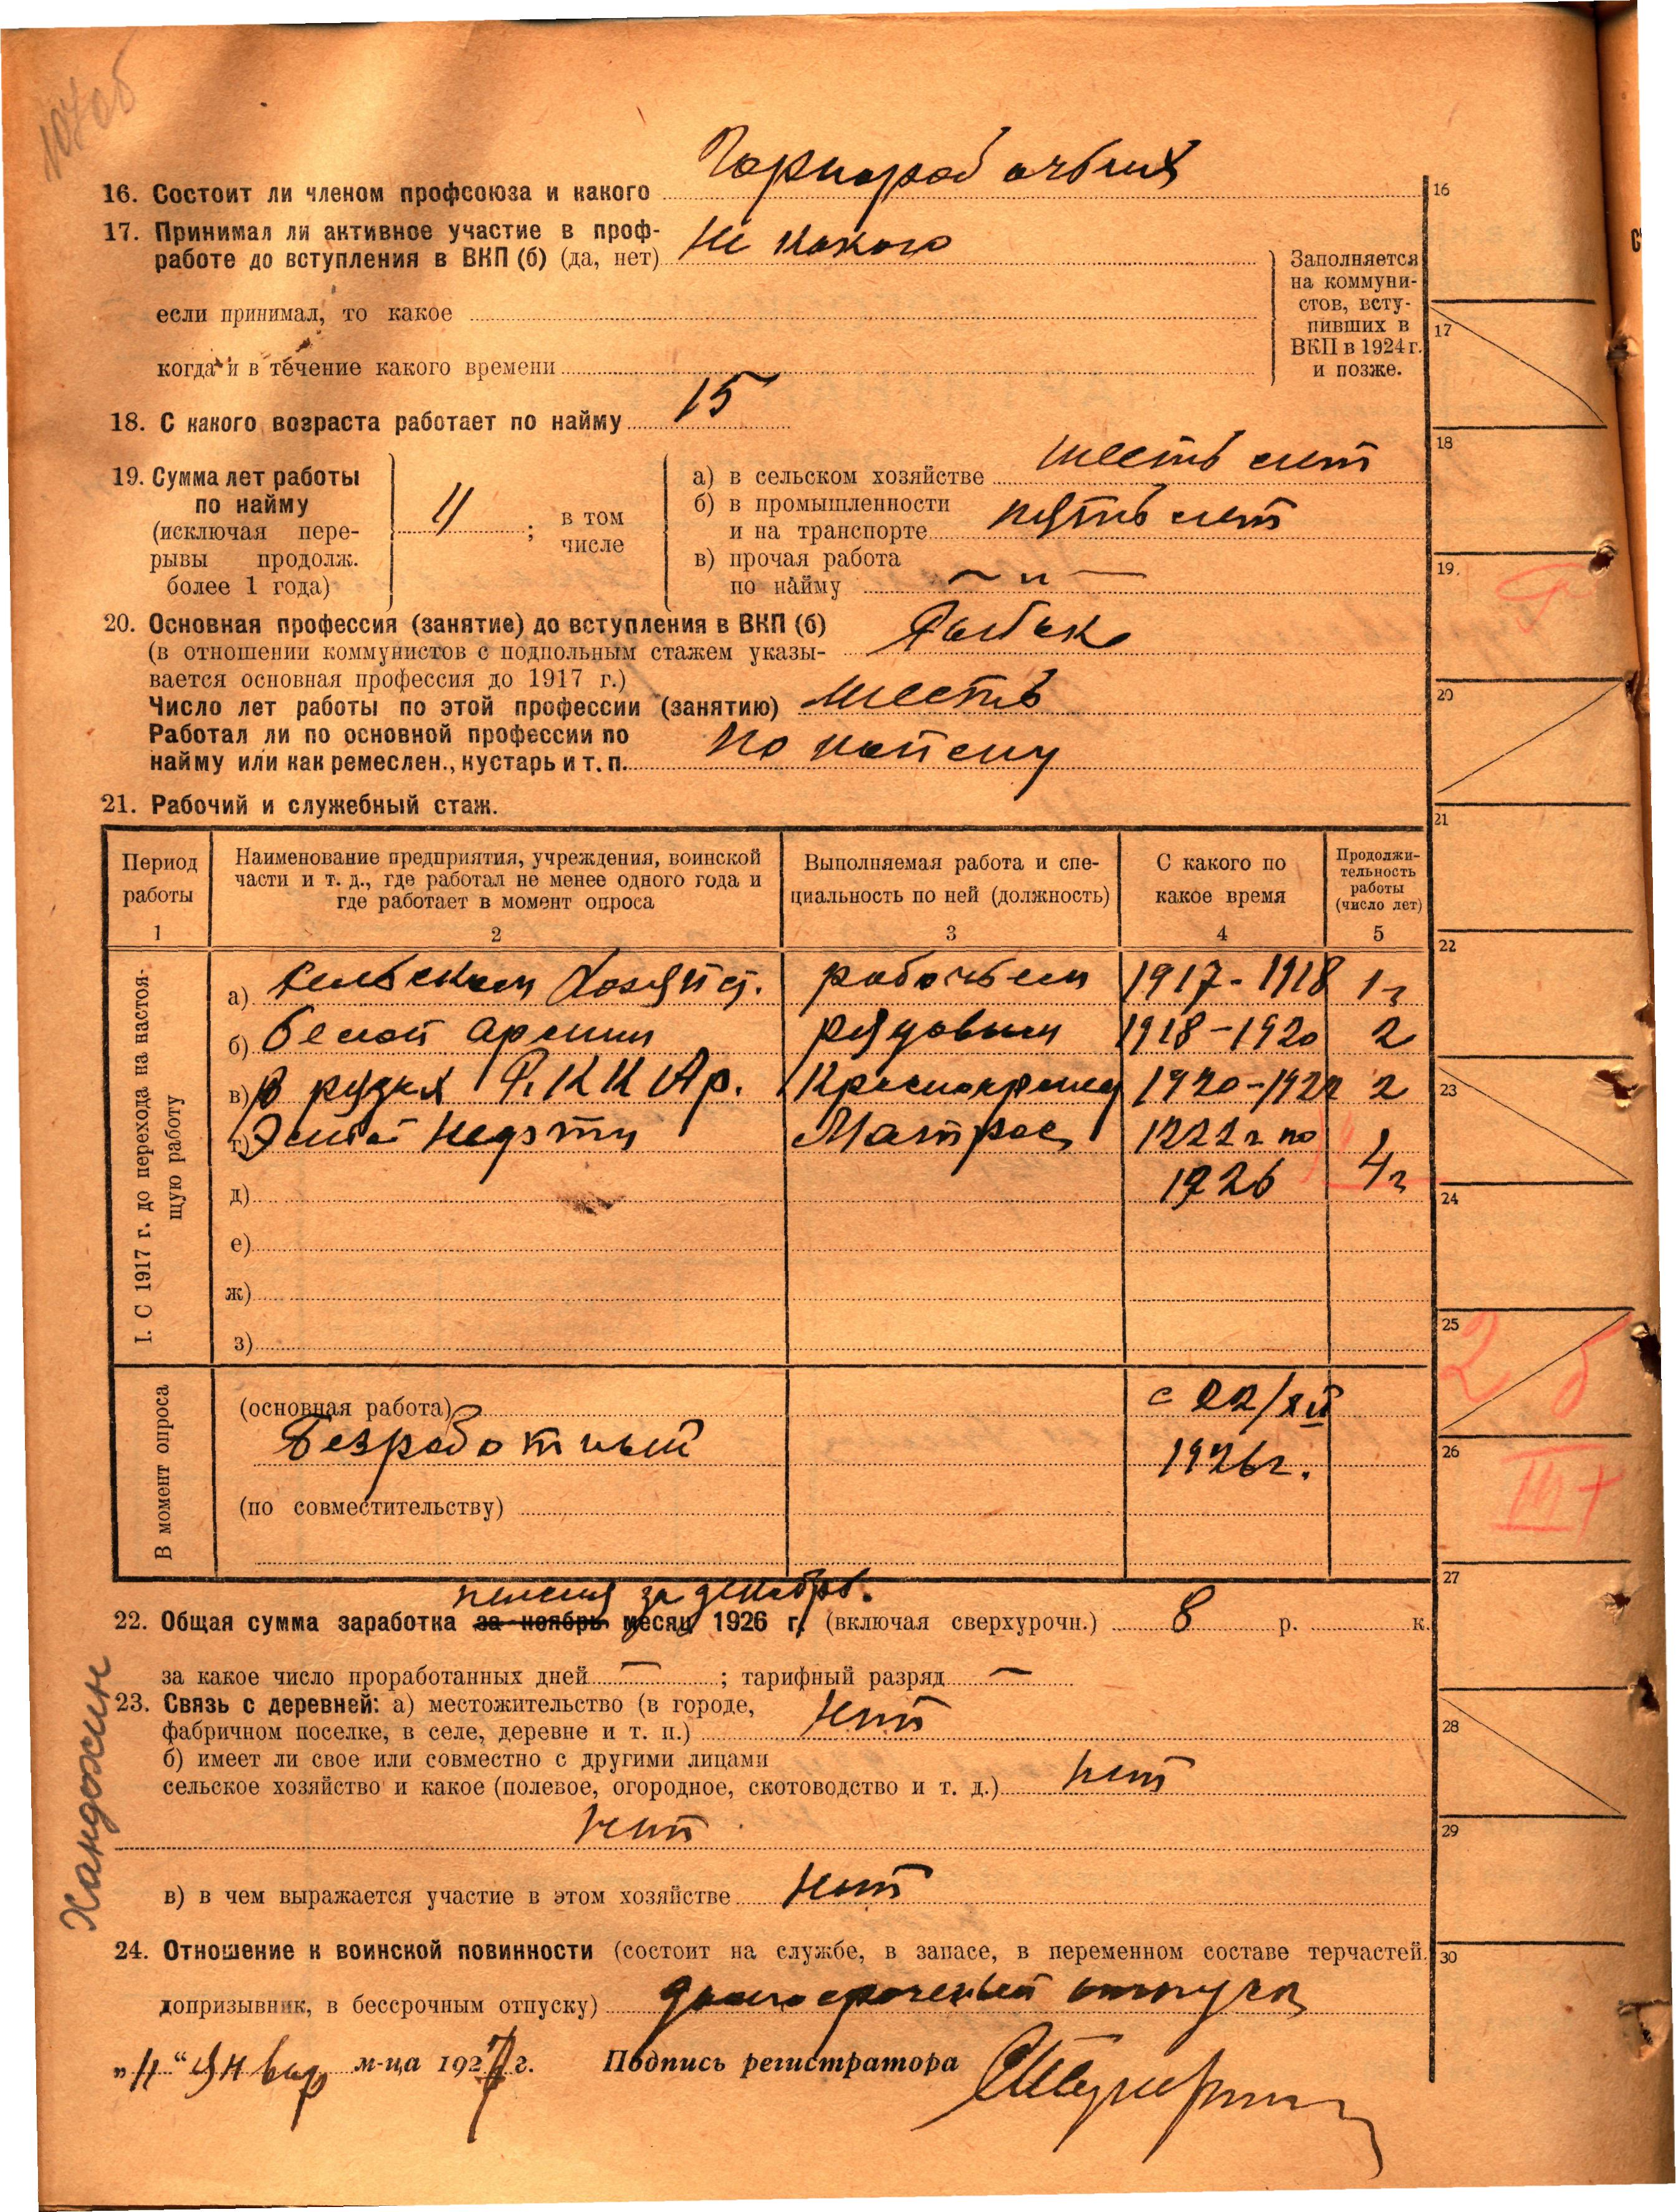 107об
16. Состоит ли членом профсоюза и какого Горнорабочьих
16
17. Принимал ли активное участие в проф-
работе до вступления в ВКП (б) (да, нет) Не какого
если принимал, то какое
когда и в течение какого времени
Заполняется
на коммуни-
стов, всту-
пивших в
ВКП в 1924 г.
и позже.
17
18. С какого возраста работает по найму 15
18
19. Сумма лет работы
по найму
(исключая пере-
рывы продолж.
более 1 года)
11 ;
в том
числе
а) в сельском хозяйстве шесть лет
б) в промышленности
и на транспорте пять лет
в) прочая работа
по найму — " —
19.
20. Основная профессия (занятие) до вступления в ВКП (б) Рыбак
(в отношении коммунистов с подпольным стажем указы-
вается основная профессия до 1917 г.)
Число лет работы по этой профессии (занятию) шесть
20
Работал ли по основной профессии по
найму или как ремеслен., кустарь и т. п. по найму
21. Рабочий и служебный стаж.
21
Период
работы
1
Наименование предприятия, учреждения, воинской
части и т. д., где работал не менее одного года и
где работает в момент опроса
2
Выполняемая работа и спе-
циальность по ней (должность)
3
С какого по
какое время
4
Продолжи-
тельность
работы
(число лет)
5
22
I. С 1917 г. до перехода на настоя-
щую работу
а) Сельском Хозяйст. рабочьем 1917-1918 1 г
б) белой армии рядовым 1918-1920 2
в) В рядах Р. К К Ар. 1920-1922 2
23
г) Нефти Матрос 1922 г по
д) 1926 4 г
24
е)
ж)
з)
25
2 б
В момент опроса
(основная работа) с 22/XII
Безработный 1926 г.
26
III +
(по совместительству)
27
пенсия за декабрь.
22. Общая сумма заработка за ноябрь месяц 1926 г. (включая сверхурочн.) 8 р. к.
за какое число проработанных дней — ; тарифный разряд —
23. Связь с деревней: а) местожительство (в городе,
фабричном поселке, в селе, деревне и т. п.) нет
28
б) имеет ли свое или совместно с другими лицами
сельское хозяйство и какое (полевое, огородное, скотоводство и т. д.) нет
нет
29
в) в чем выражается участие в этом хозяйстве нет
Хандожин
24. Отношение к воинской повинности (состоит на службе, в запасе, в переменном составе терчастей,
30
допризывник, в бессрочным отпуску) отпуск
„11“ Январ м-ца 1927 г. Подпись регистратора